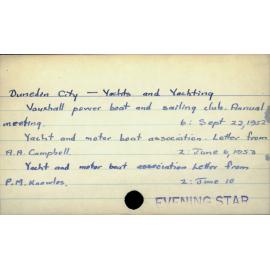 Dunedin City — Yachts and Yachting
Vauxhall power boat and sailing club. Annual
meeting. 6: Sept 23, 1952
Yacht and motor boat association. Letter from
A.A. Campbell. 2: June 6, 1953
Yacht and motor boat association Letter from
P.M. Knowles. 2: June 10
EVENING STAR